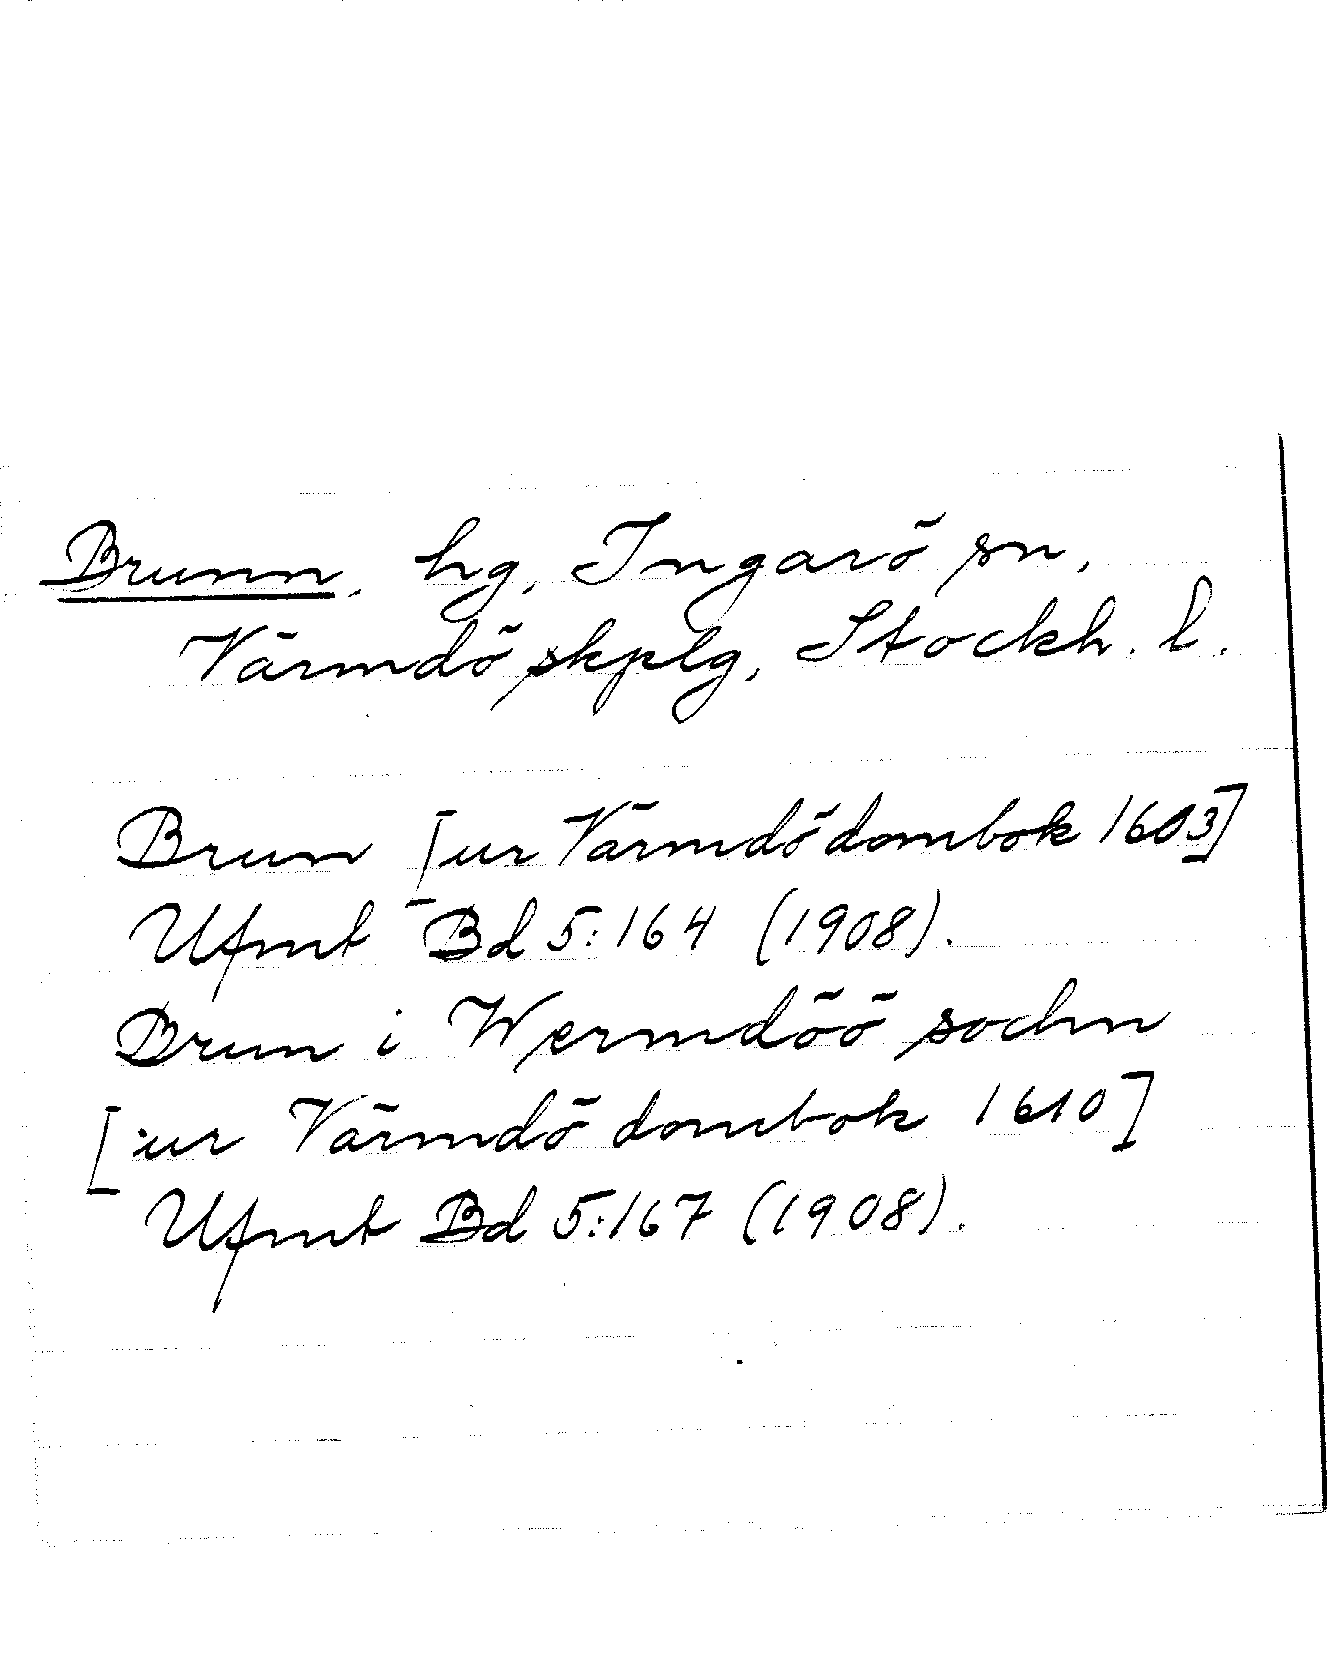 Brunn, hg, Ingarö sn,
Värmdö skplg, Stockh. l.
Brun [ur Värmdö dombok 1603]
Ufmt Bd 5:164 (1908).
Brun i Wermdöö sochn
[ur Värmdö dombok 1610]
Ufmt Bd 5:167 (1908).